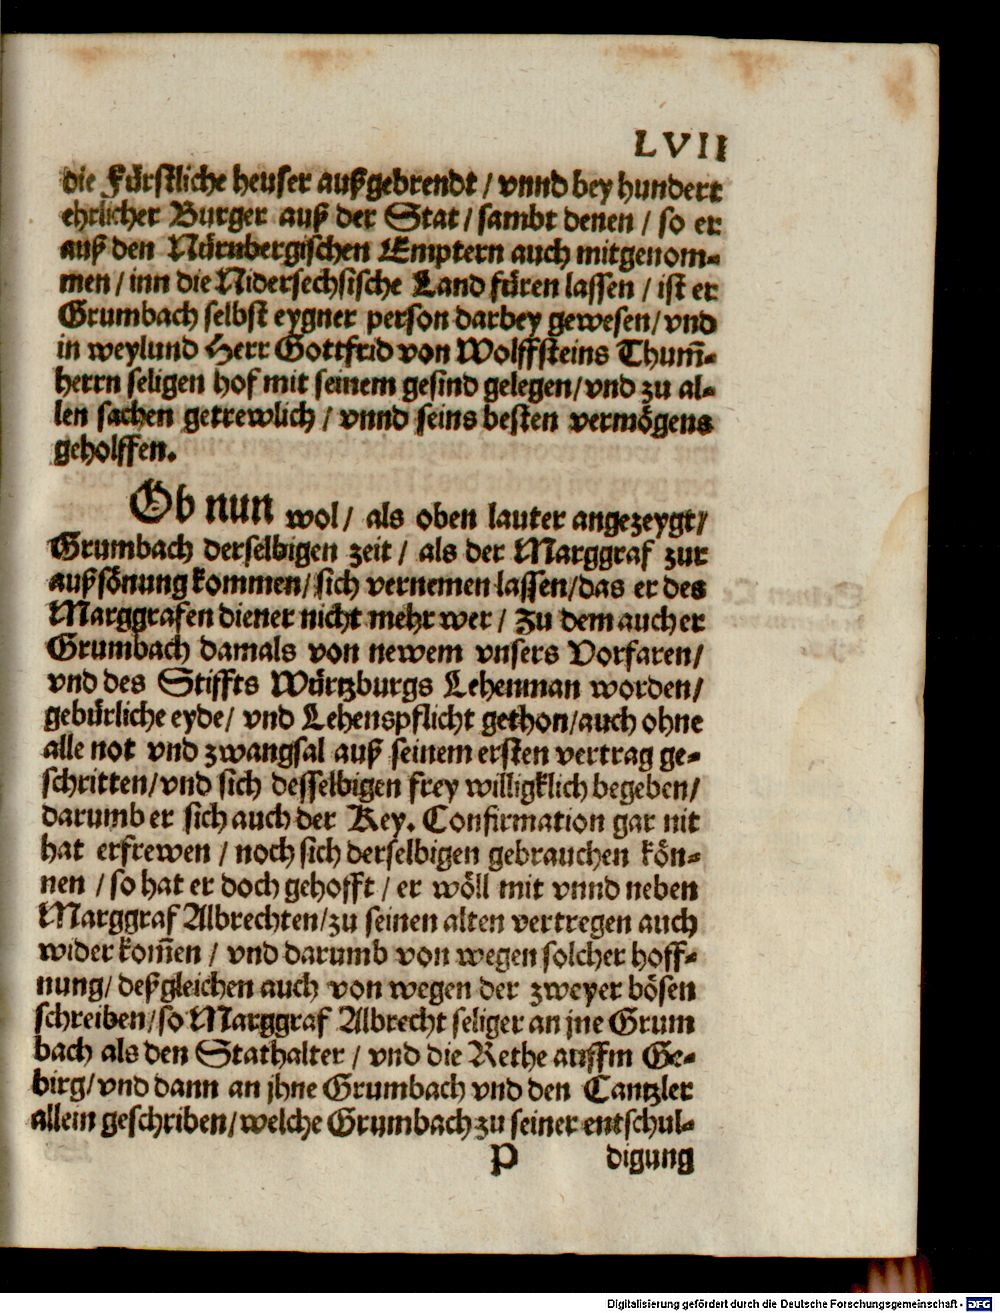 LVII
die Fürstliche heuser außgebrendt / vnnd bey hundert
ehrlicher Burger auß der Stat / sambt denen / so er
auß den Nürnbergischen Emptern auch mitgenom-
men / inn die Nidersechsische Land füren lassen / ist er
Grumbach selbst eygner person darbey gewesen / vnd
in weylund Herr Gottfrid von Wolffsteins Thum̄-
herrn seligen hof mit seinem gesind gelegen / vnd zu al-
len sachen getrewlich / vnnd seins besten vermögens
geholffen.
Ob nun wol / als oben lauter angezeygt /
Grumbach derselbigen zeit / als der Marggraf zur
außsönung kommen / sich vernemen lassen / das er des
Marggrafen diener nicht mehr wer / Zu dem auch er
Grumbach damals von newem vnsers Vorfaren /
vnd des Stiffts Würtzburgs Lehenman worden /
gebürliche eyde / vnd Lehenspflicht gethon / auch ohne
alle not vnd zwangsal auß seinem ersten vertrag ge-
schritten / vnd sich desselbigen frey willigklich begeben /
darumb er sich auch der Key. Confirmation gar nit
hat erfrewen / noch sich derselbigen gebrauchen kön-
nen / so hat er doch gehofft / er wöll mit vnnd neben
Marggraf Albrechten / zu seinen alten vertregen auch
wider kom̄en / vnd darumb von wegen solcher hoff-
nung / deßgleichen auch von wegen der zweyer bösen
schreiben / so Marggraf Albrecht seliger an jne Grum
bach als den Stathalter / vnd die Rethe auffm Ge-
birg / vnd dann an jhne Grumbach vnd den Cantzler
allein geschriben / welche Grumbach zu seiner entschul-
P digung
Digitalisierung gefördert durch die Deutsche Forschungsgemeinschaft - DFG